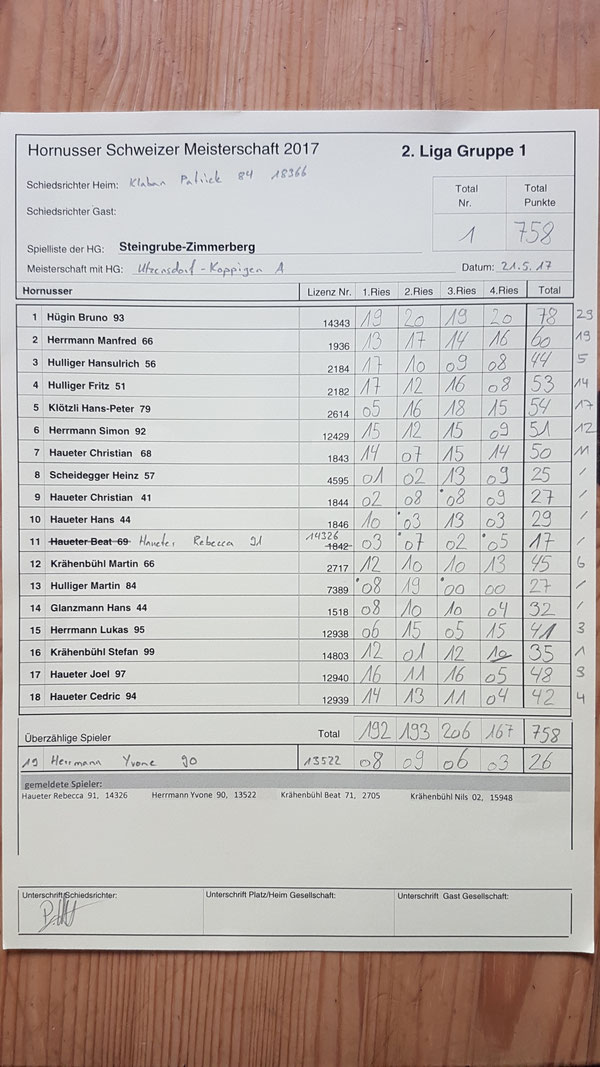 Hornusser Schweizer Meisterschaft 2017 2. Liga Gruppe 1
Schiedsrichter Heim: Klaban Patrick 84 18366
Total Nr. Total Punkte
Schiedsrichter Gast:
1 758
Spielliste der HG: Steingrube-Zimmerberg
Meisterschaft mit HG: Utzensdorf-Koppigen A Datum: 21.5.17
Hornusser Lizenz Nr. 1.Ries 2.Ries 3.Ries 4.Ries Total
1 Hügin Bruno 93 14343 19 20 19 20 78 29
2 Herrmann Manfred 66 1936 13 17 14 16 60 19
3 Hulliger Hansulrich 56 2184 17 10 09 08 44 5
4 Hulliger Fritz 51 2182 17 12 16 08 53 14
5 Klötzli Hans-Peter 79 2614 05 16 18 15 54 17
6 Herrmann Simon 92 12429 15 12 15 09 51 12
7 Haueter Christian 68 1843 14 07 15 14 50 11
8 Scheidegger Heinz 57 4595 01 02 13 09 25 /
9 Haueter Christian 41 1844 02 08 08 09 27 /
10 Haueter Hans 44 1846 10 03 13 03 29 /
11 Haueter Beat 69 Haueter Rebecca 91 14326 1842 03 07 02 05 17 /
12 Krähenbühl Martin 66 2717 12 10 10 13 45 6
13 Hulliger Martin 84 7389 08 19 00 00 27 /
14 Glanzmann Hans 44 1518 08 10 10 04 32 /
15 Herrmann Lukas 95 12938 06 15 05 15 41 3
16 Krähenbühl Stefan 99 14803 12 01 12 10 35 1
17 Haueter Joel 97 12940 16 11 16 05 48 9
18 Haueter Cedric 94 12939 14 13 11 04 42 4
Überzählige Spieler Total 192 193 206 167 758
19 Herrmann Yvone 90 13522 08 09 06 03 26
gemeldete Spieler:
Haueter Rebecca 91, 14326 Herrmann Yvone 90, 13522 Krähenbühl Beat 71, 2705 Krähenbühl Nils 02, 15948
Unterschrift/Schiedsrichter: Unterschrift Platz/Heim Gesellschaft: Unterschrift Gast Gesellschaft: